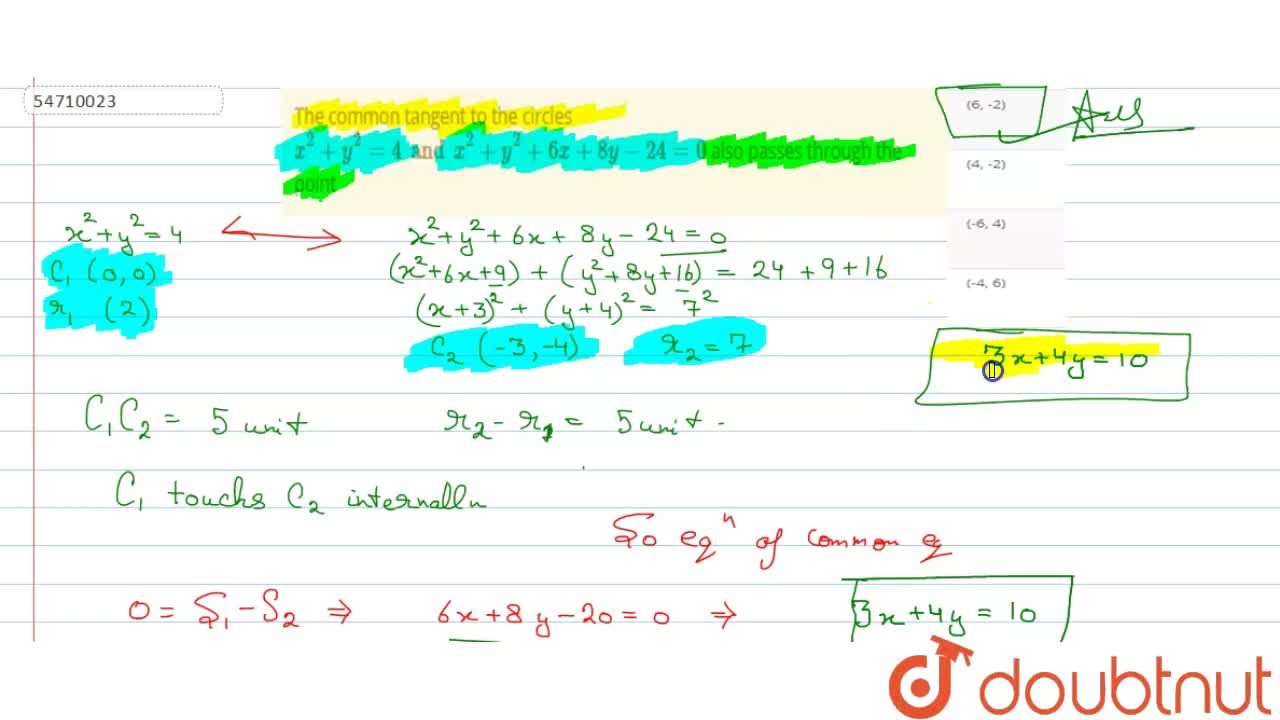 54710023
The common tangent to the circles
x² + y² = 4 and x² + y² + 6x + 8y − 24 = 0 also passes through the
point
(6, -2)
Ans
(4, -2)
(-6, 4)
(-4, 6)
x² + y² = 4
C₁ (0, 0)
r₁ (2)
x² + y² + 6x + 8y − 24 = 0
(x² + 6x + 9) + (y² + 8y + 16) = 24 + 9 + 16
(x + 3)² + (y + 4)² = 7²
C₂ (-3, -4) r₂ = 7
3x + 4y = 10
C₁C₂ = 5 unit r₂ − r₁ = 5 unit
C₁ touchs C₂ internally
So eqⁿ of common eq
0 = S₁ − S₂ ⇒ 6x + 8y − 20 = 0 ⇒ 3x + 4y = 10
doubtnut